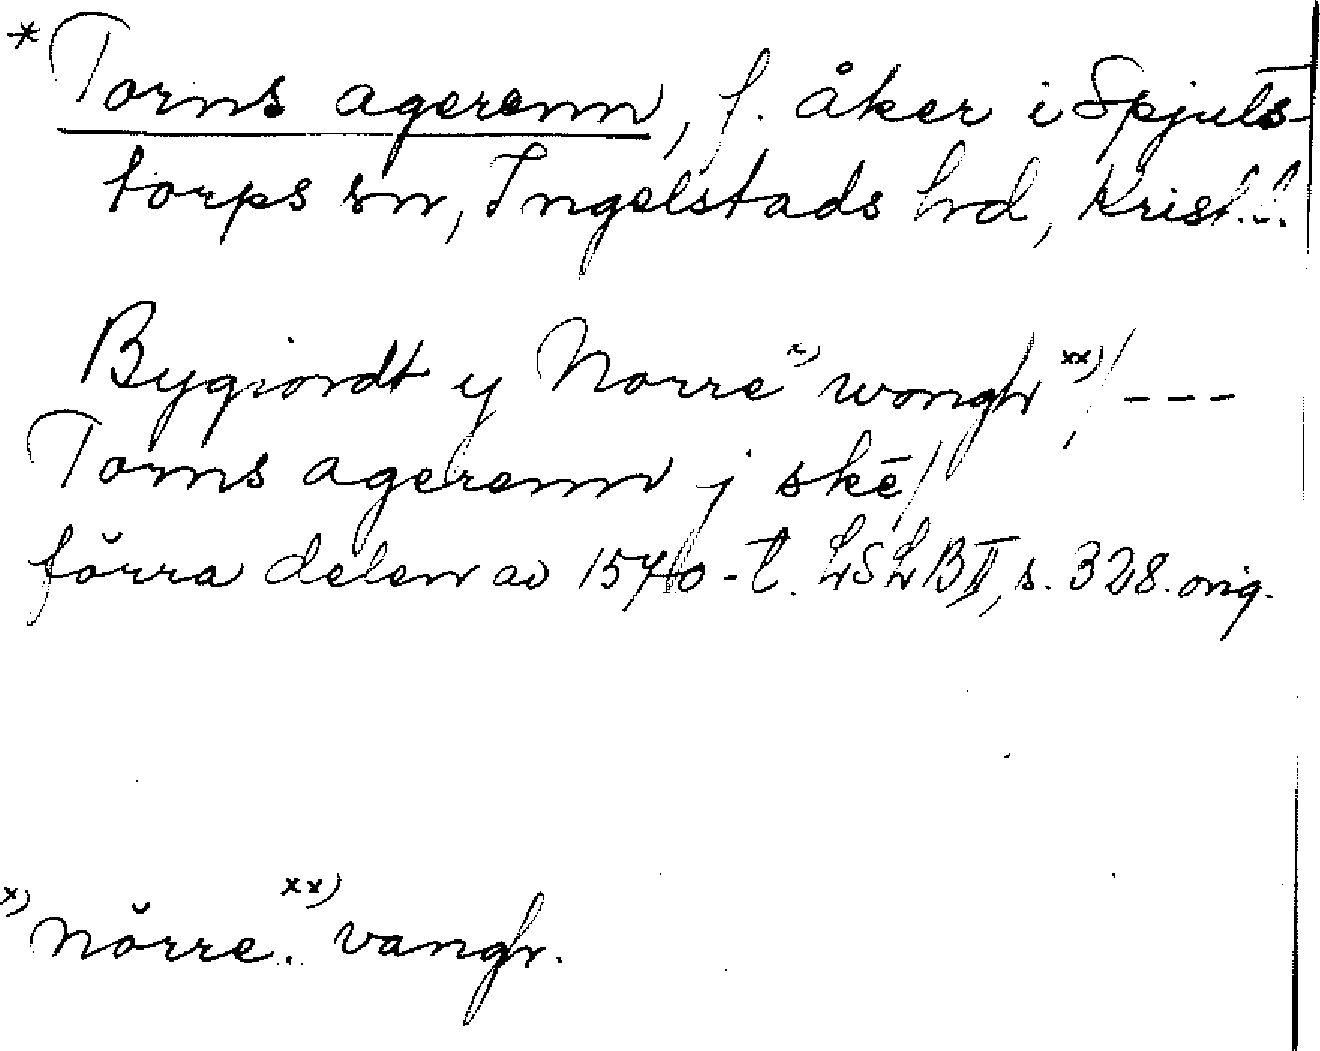 *Torns agerenn, f. åker i Spjuts-
torps sn, Ingelstads hd, Krist.l.
Bygiordt y Norre x) wongh xx)/ ---
Torns agerenn j skē/
förra delen av 1540-t. LSLB II, s. 328. orig.
x) nörre. xx) vangh.